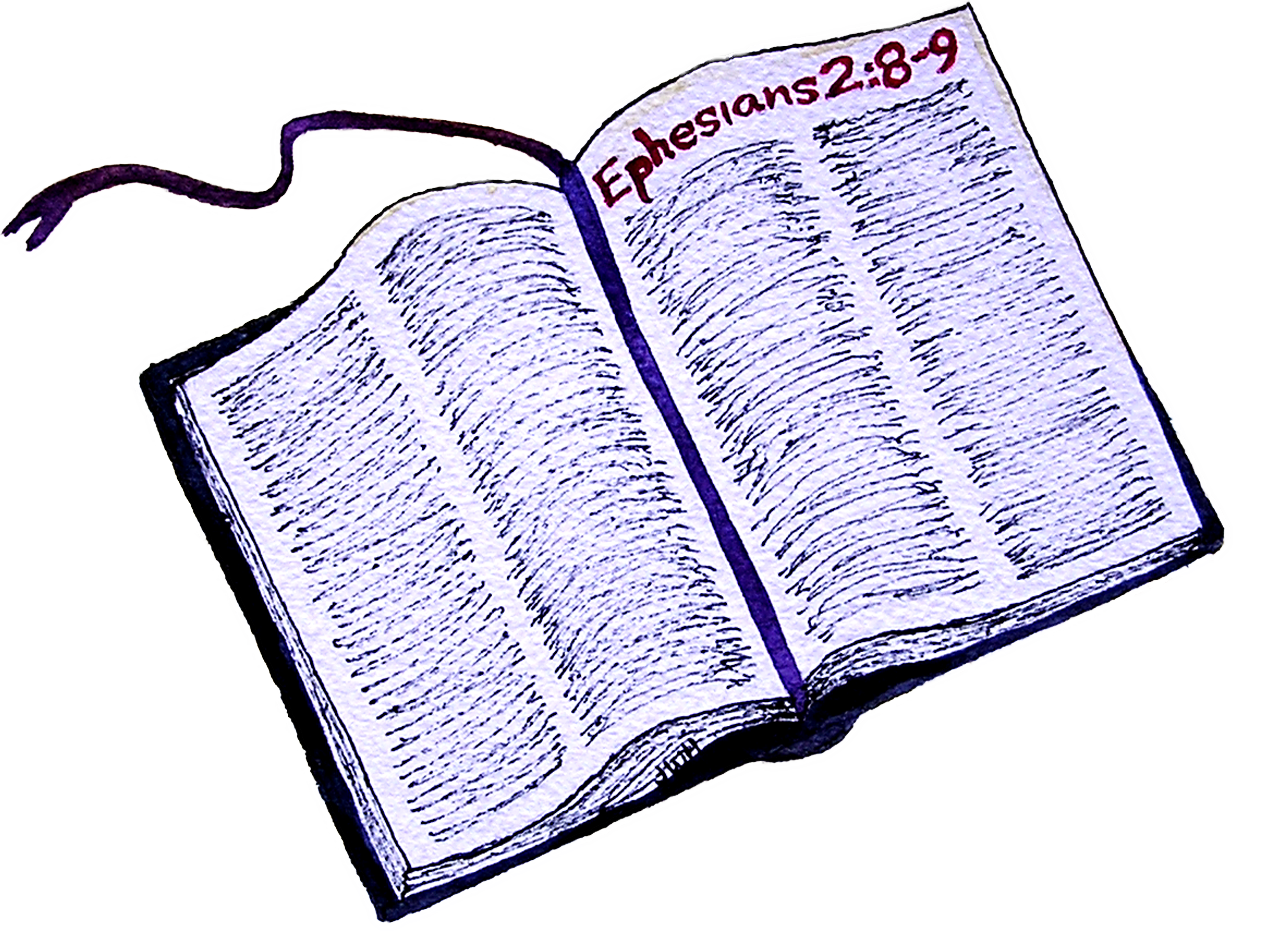 Ephesians 2:8-9